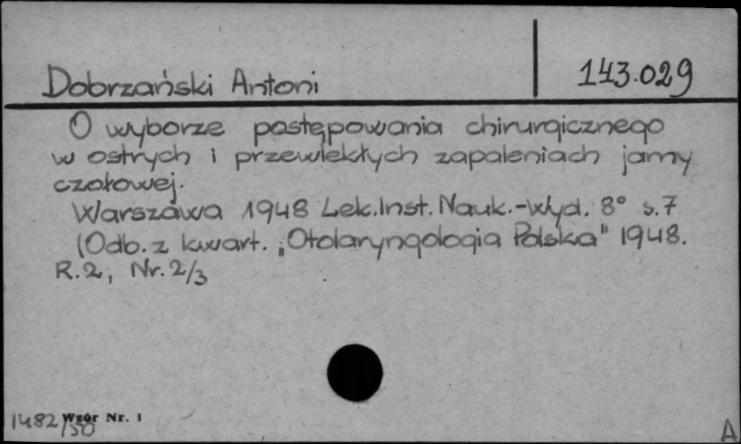 Dobrzański Antoni
143.029
O wyborze postępowania chirurgicznego
w ostrych i przewlekłych zapaleniach jamy
czołowej.
Warszawa 1948 Lek.Inst. Nauk.-Wyd. 8° s.7
(Odb. z kwart. „Otolaryngologia Polska" 1948.
R.2, Nr. 2/3
1482/50 Wzór Nr. 1
A